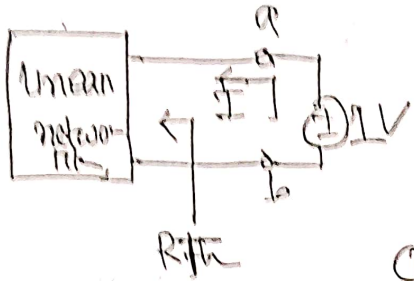 a
Linear
networ-
k
I
1V
b
RTh
C